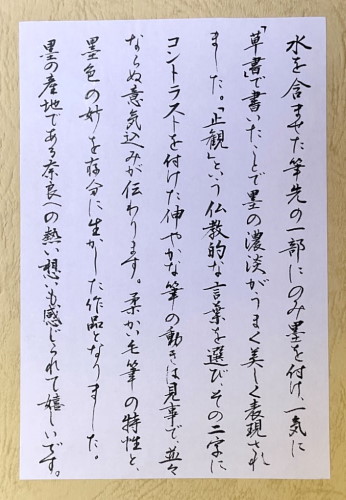 水を含ませた筆先の一部にのみ墨を付け、一気に
「草書」で書いたことで墨の濃淡がうまく美しく表現され
ました。「止観」という仏教的な言葉を選び、その二字に
コントラストを付けた伸やかな筆の動きは見事で、並々
ならぬ意気込みが伝わります。柔かい毛筆の特性と、
墨色の妙を存分に生かした作品となりました。
墨の産地である奈良への熱い想いも感じられて嬉しいです。